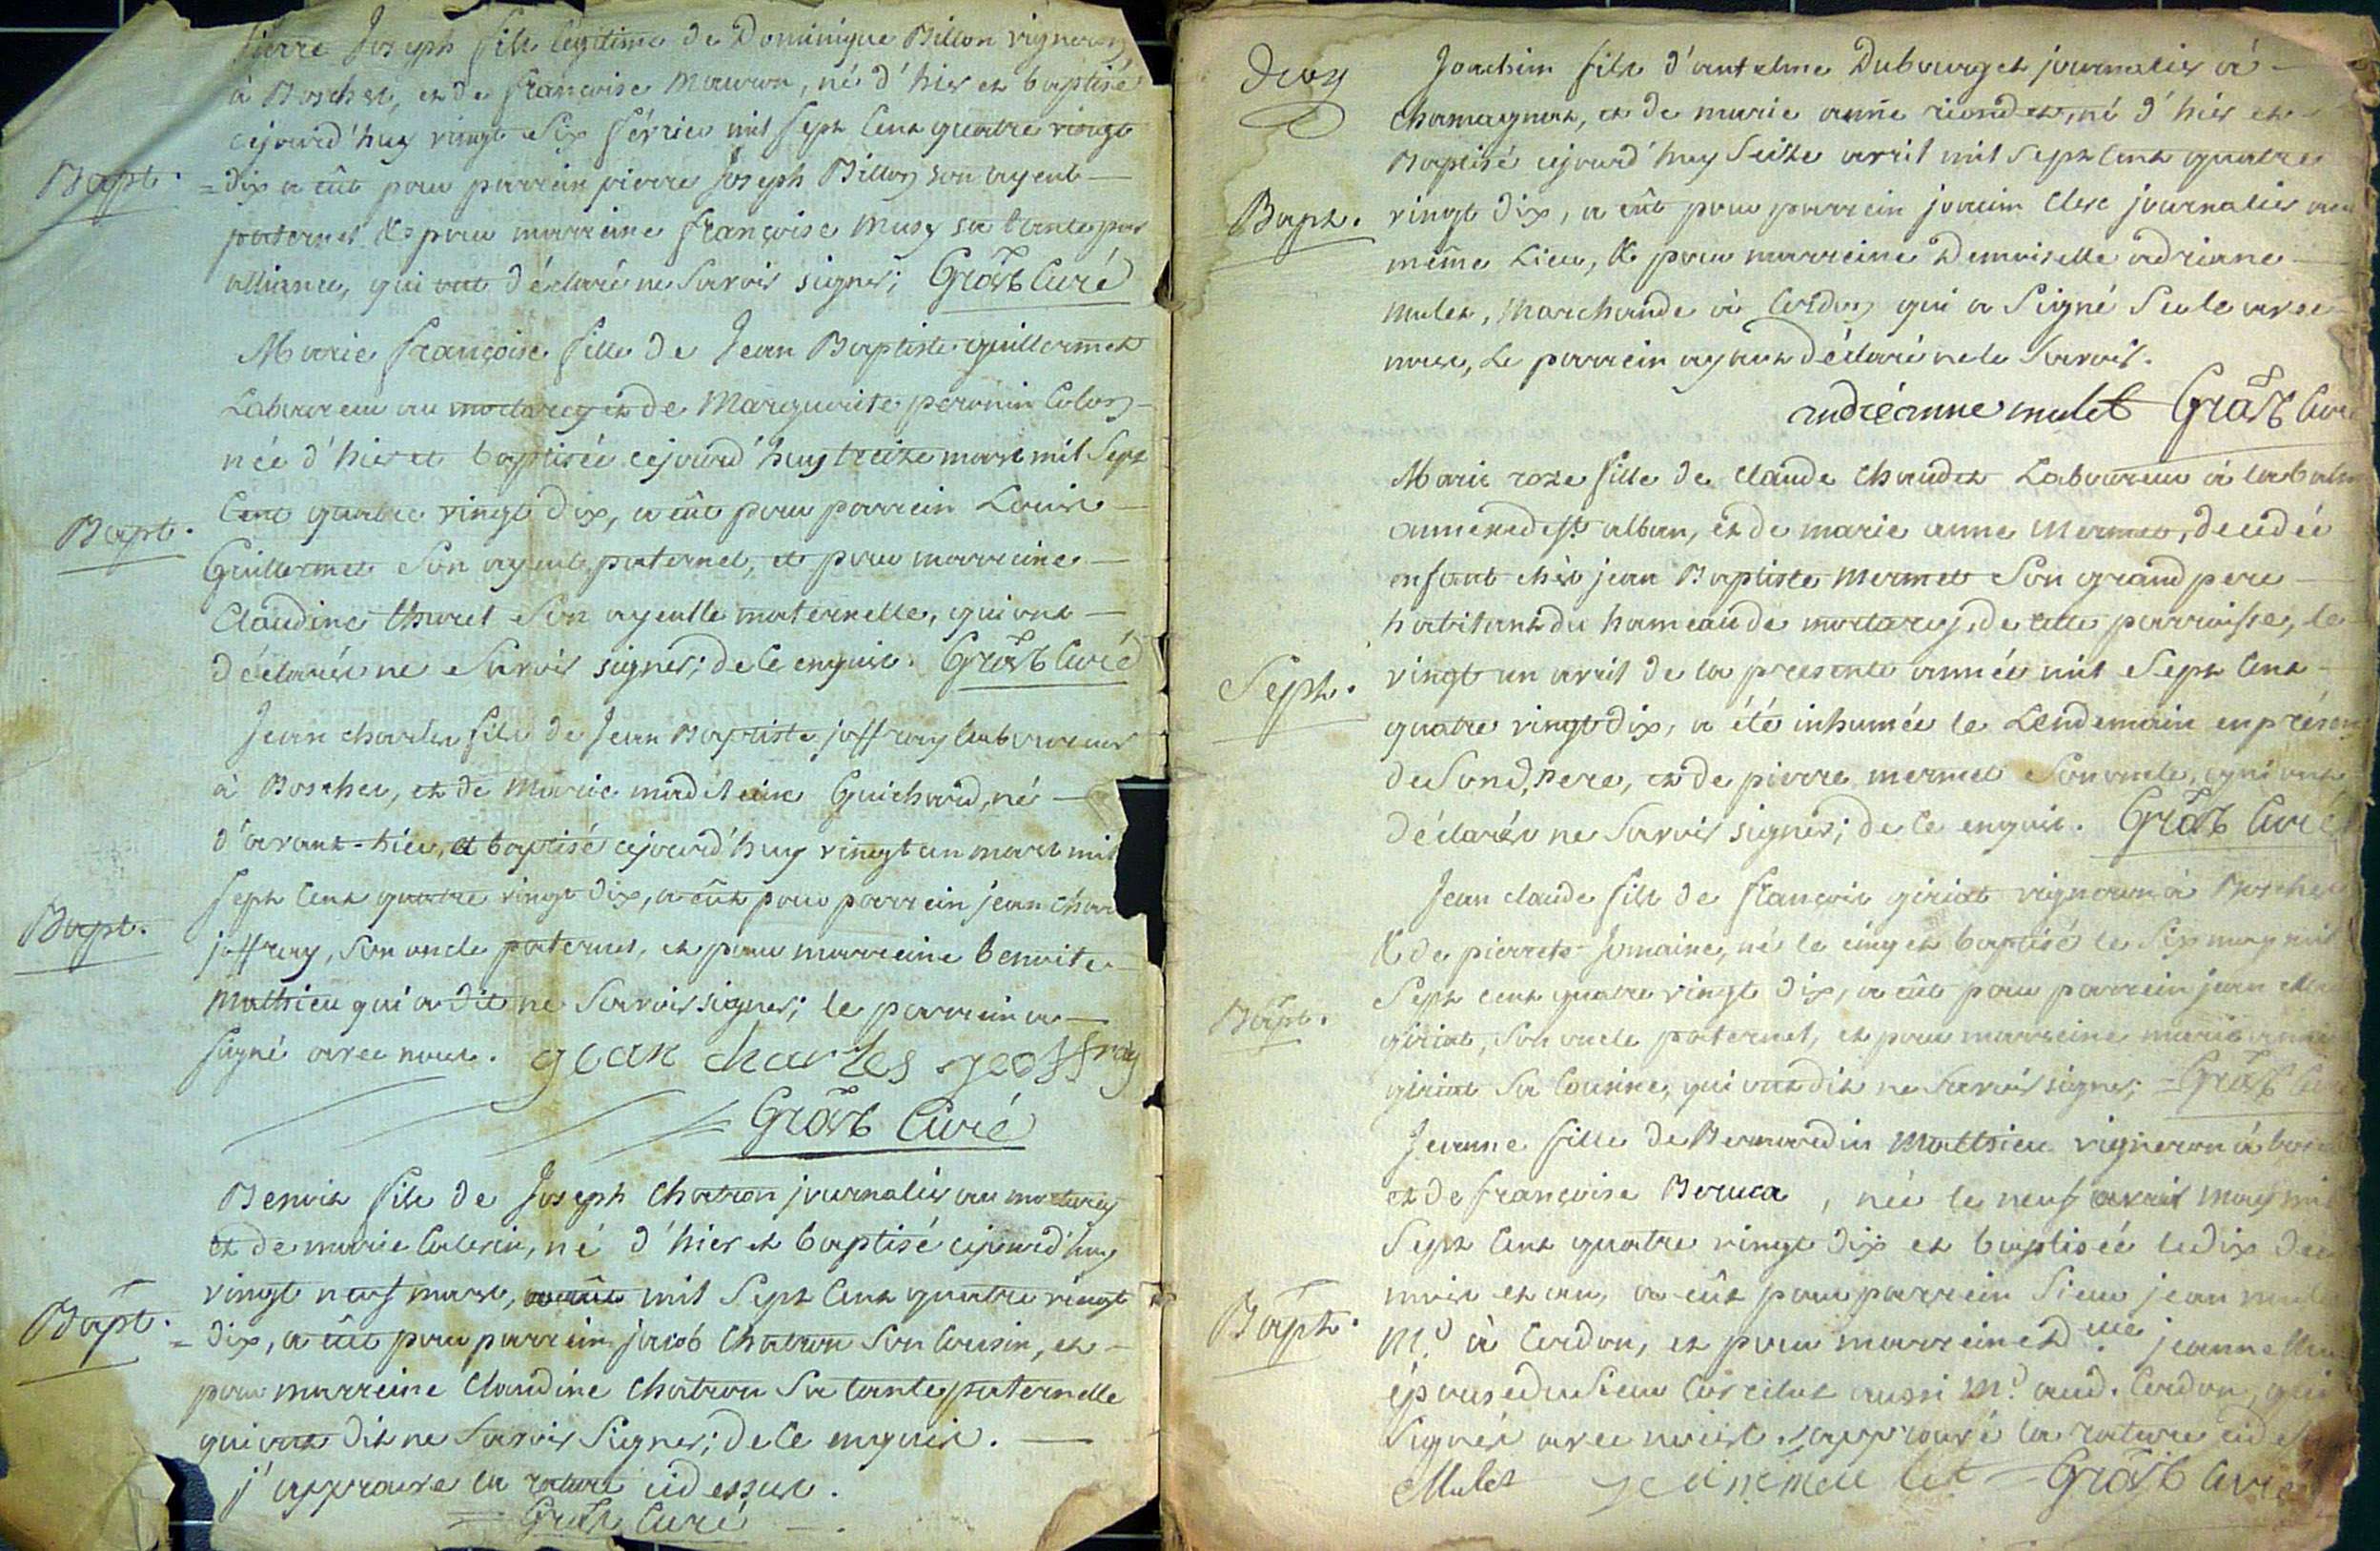 Pierre Joseph fils légitime de Dominique Billon vigneron
à Boschet, et de françoise Mauron, né d'hier et baptisé
cejourd'huy vingt Six février mil Sept Cent quatre vingt
Bapt.
= dix a eût pour parrein pierre Joseph Billon son ayeul
paternel, & pour marreine françoise Musy sa tante par
alliance, qui ont déclaré ne Savoir signer; Curé
Marie françoise fille de Jean Baptiste guillermet
Laboureur au de Marguerite peronin Colon
née d'hier et baptisée cejourd'huy treize mars mil Sept
Cent quatre vingt dix, a eût pour parrein Louis
Bapt.
Guillermet Son ayeul paternel, et pour marreine
Claudine thuret Son ayeulle maternelle, qui ont
déclarés ne Savoir signer; de ce enquis. Curé
Jean charles fils de Jean Baptiste joffray laboureur
à Boschet, et de Marie madeleine Guichard, né
d'avant-hier, et baptisé cejourd'huy vingt un mars mil
Sept Cent quatre vingt dix, a eût pour parrein jean char
Bapt.
joffray, Son oncle paternel, et pour marreine benoite
Mathieu qui a dit ne Savoir signer; le parrein a
signé avec nous. gean charles geoffray
Curé
Benoit fils de Joseph Chatron journalier au
et de marie, né d'hier et baptisé cejourd'huy
vingt neuf mars, mil Sept Cent quatre vingt
Bapt.
= dix, a eût pour parrein jacob Chatron Son Cousin, et
pour marreine Claudine Chatron Sa tante paternelle
qui ont dit ne Savoir Signer; de ce enquis.
j'approuve la rature cidessus.
Curé
Joachim fils d'antelme Dubourget journalier à
Chamagnat, et de marie anne riondet, né d'hier et
Baptisé cejourd'huy Seize avril mil Sept Cent quatre
Bapt.
vingt dix, a eût pour parrein joacim Clerc journalier au
même Lieu, & pour marreine Demoiselle adrienne
Mulet, Marchande à Cordon, qui a Signé Seule avec
nous, Le parrein ayant déclaré ne le Savoir.
andréanne mulet Curé
Marie roze fille de Claude Chaudet Laboureur à la balme
annexe de st alban, et de marie anne Mermet, décédée
enfant chés jean Baptiste Mermet Son grand pere
habitant du hameau de de cette parroisse, le
Sept.
vingt un avril de la presente année mil Sept Cent
quatre vingt dix, a été inhumée le Lendemain en présen
de Sond. pere, et de pierre mermet Son oncle, qui ont
déclarés ne Savoir signer; de ce enquis. Curé
Jean claude fils de françois giriat vigneron à Boschet
& de pierrete, né le cinq et baptisé le Six may mil
Sept cent quatre vingt dix, a eût pour parrein jean
Bapt.
giriat, Son oncle paternel, et pour marreine marie anne
giriat Sa Cousine, qui ont dit ne Savoir signer; Curé
Jeanne fille de Bernardin Mathieu vigneron à
et de françoise Beruca, née le neuf may mil
Sept Cent quatre vingt dix et baptisée le dix
mois et an, a eût pour parrein Sieur jean mulet
Bapt.
Md. à Cordon, et pour marreine dlle. jeanne
épouse du Sieur aussi Md. aud. Cordon, qui
Signés avec nous. approuvé la rature cid
Mulet jeanne mulet Curé